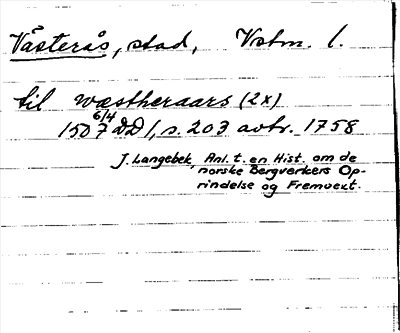 Västerås, stad, Vstm. l.
til wæstheraars (2x)
1507 6/4 DD 1, s. 203 avtr. 1758
J. Langebek, Anl. t. en Hist. om de
norske Bergverkers Op-
rindelse og Fremvext.